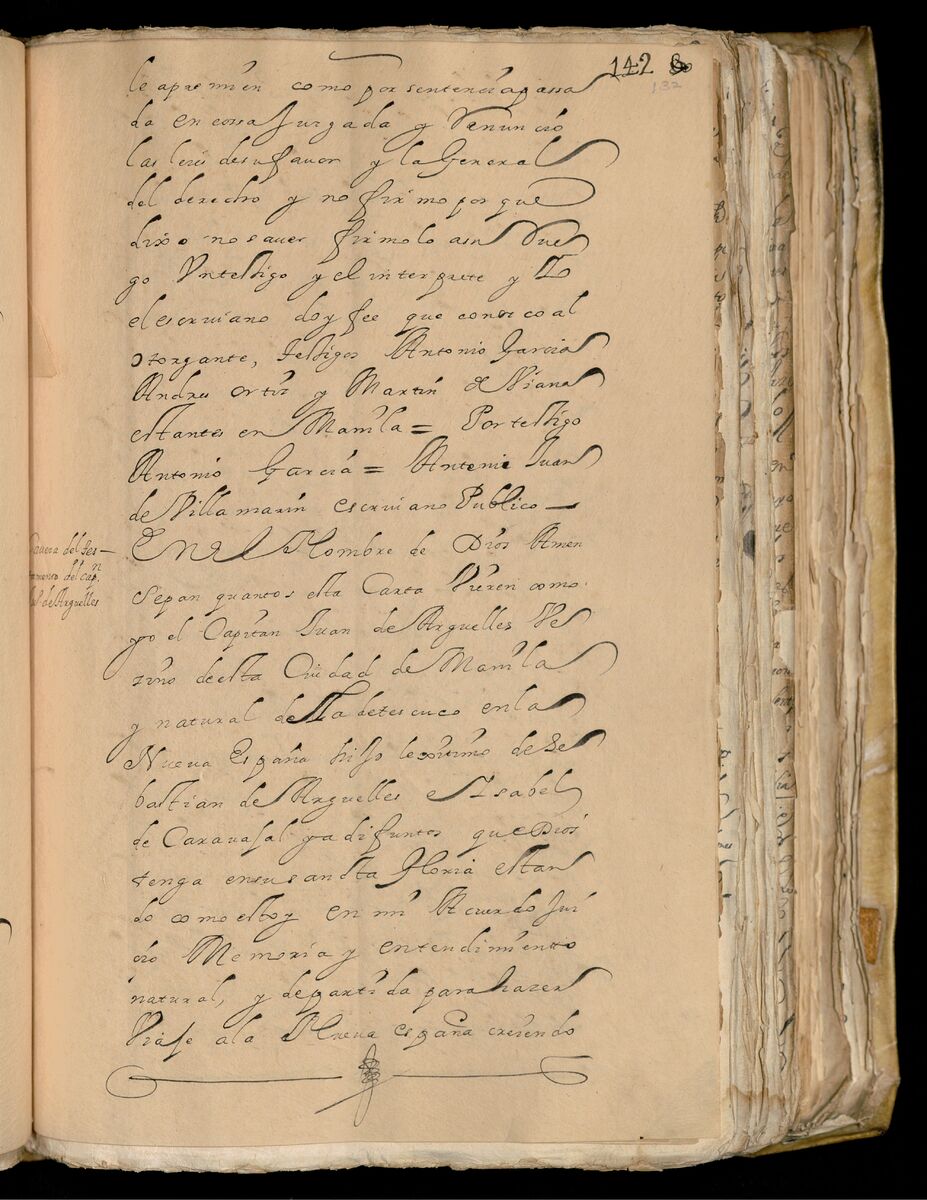 142
132
le apremien como por sentencia passa
da en cossa Jurgada y Renuncio
las leies de su fauor y la General
del derecho y no firmo porque
dixo no sauer firmolo a su Rue
go Un testigo y el interprete y Io
el escriuano doy fee que conosco al
otorgante, Testigos Antonio Garcia
Andres ortis y Martin de Viana
estantes en Manila = Por testigo
Antonio Garcia = Antemi Juan
de Villa marin escriuano Publico —
Cauesa del tes—
tamento del capn
Jul de Arguelles
En el Nombre de Dios Amen
Sepan quantos esta Carta Vieren como
yo el Capitan Juan de Arguelles Ve
zino de esta Ciudad de Manila
y natural de la de tescuco en la
Nueua España hijo lexitimo de Se
bastian de Arguelles e Isabel
de Carauajal ya difuntos que Dios
tenga en su santa Gloria estan
do como estoy en mi Acuerdo Jui
cio Memoria y entendimiento
natural, y de partida para hazer
Viaje a la Nueua españa creiendo